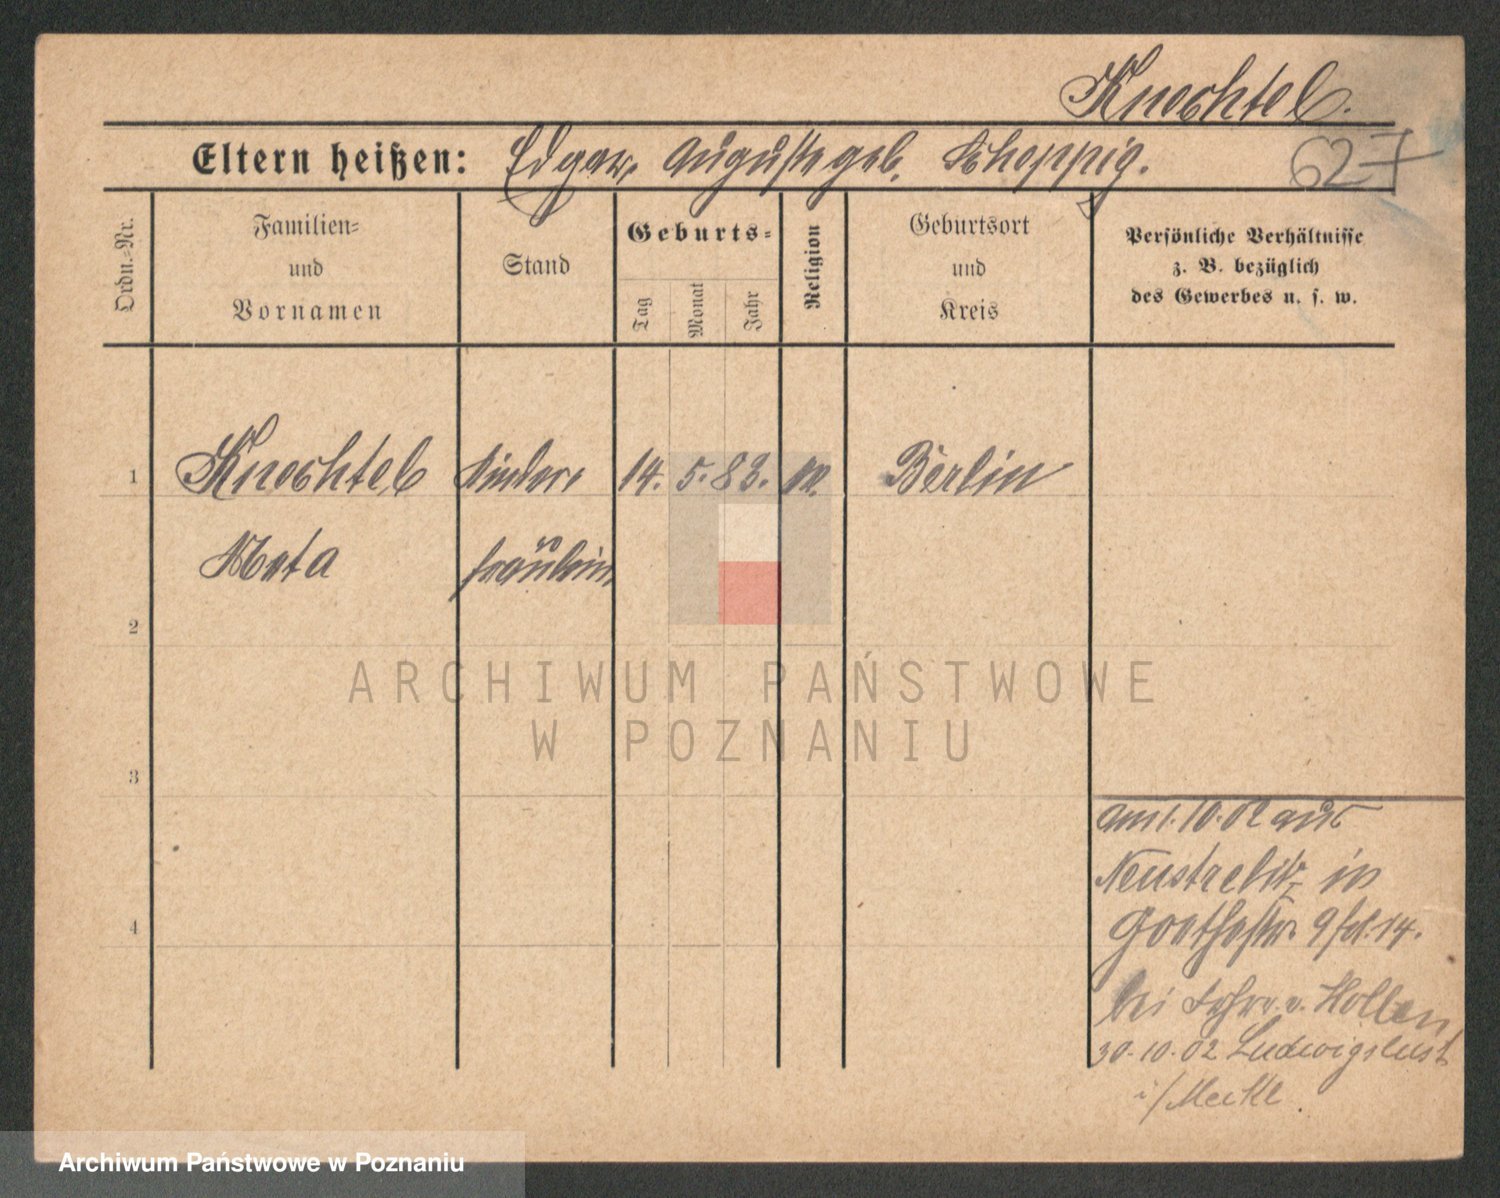 Knechtel.
Eltern heißen: Edgar, Auguste geb. Schoppig.
627
Ordn.-Nr.
Familien-
und
Vornamen
Stand
Geburts-
Tag
Monat
Jahr
Religion
Geburtsort
und
Kreis
Persönliche Verhältnisse
z. B. bezüglich
des Gewerbes u. s. w.
1 Knechtel Kinder- 14. 5. 83. Berlin
Meta fräulein
2
3
4
am 1. 10. 02 aus
Neustrelitz in
Goethestr. 9 14.
bei Frhr. v. Hollen
30. 10. 02 Ludwigslust
i/Meckl.
ARCHIWUM PAŃSTWOWE
W POZNANIU
Archiwum Państwowe w Poznaniu